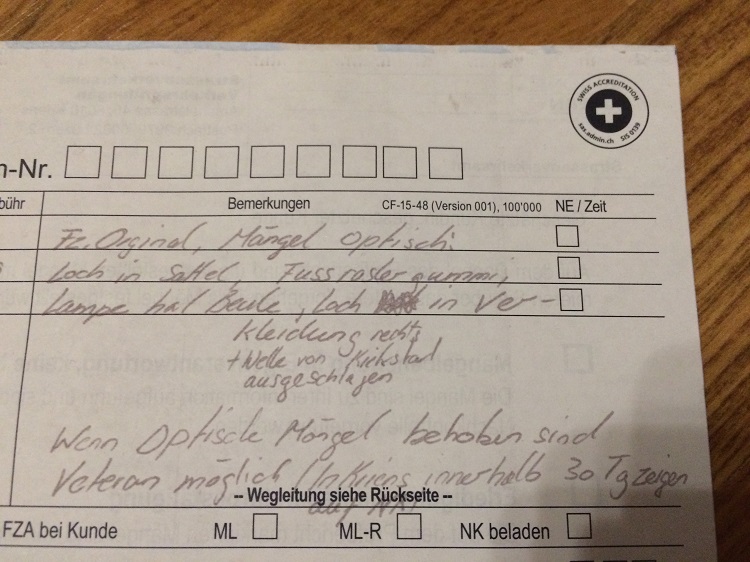 SWISS ACCREDITATION
sas.admin.ch SIS 0139
n-Nr.
bühr Bemerkungen CF-15-48 (Version 001), 100'000 NE / Zeit
Fz. Orginal, Mängel optisch:
Loch in Sattel, Fussrastergummi,
Lampe hat Beule, Loch in Ver-
kleidung rechts
+ Welle von Kickstart
ausgeschlagen
Wenn Optische Mängel behoben sind
Veteran möglich (In Kriens innerhalb 30 Tg zeigen
-- Wegleitung siehe Rückseite --
auf
FZA bei Kunde ML ML-R NK beladen